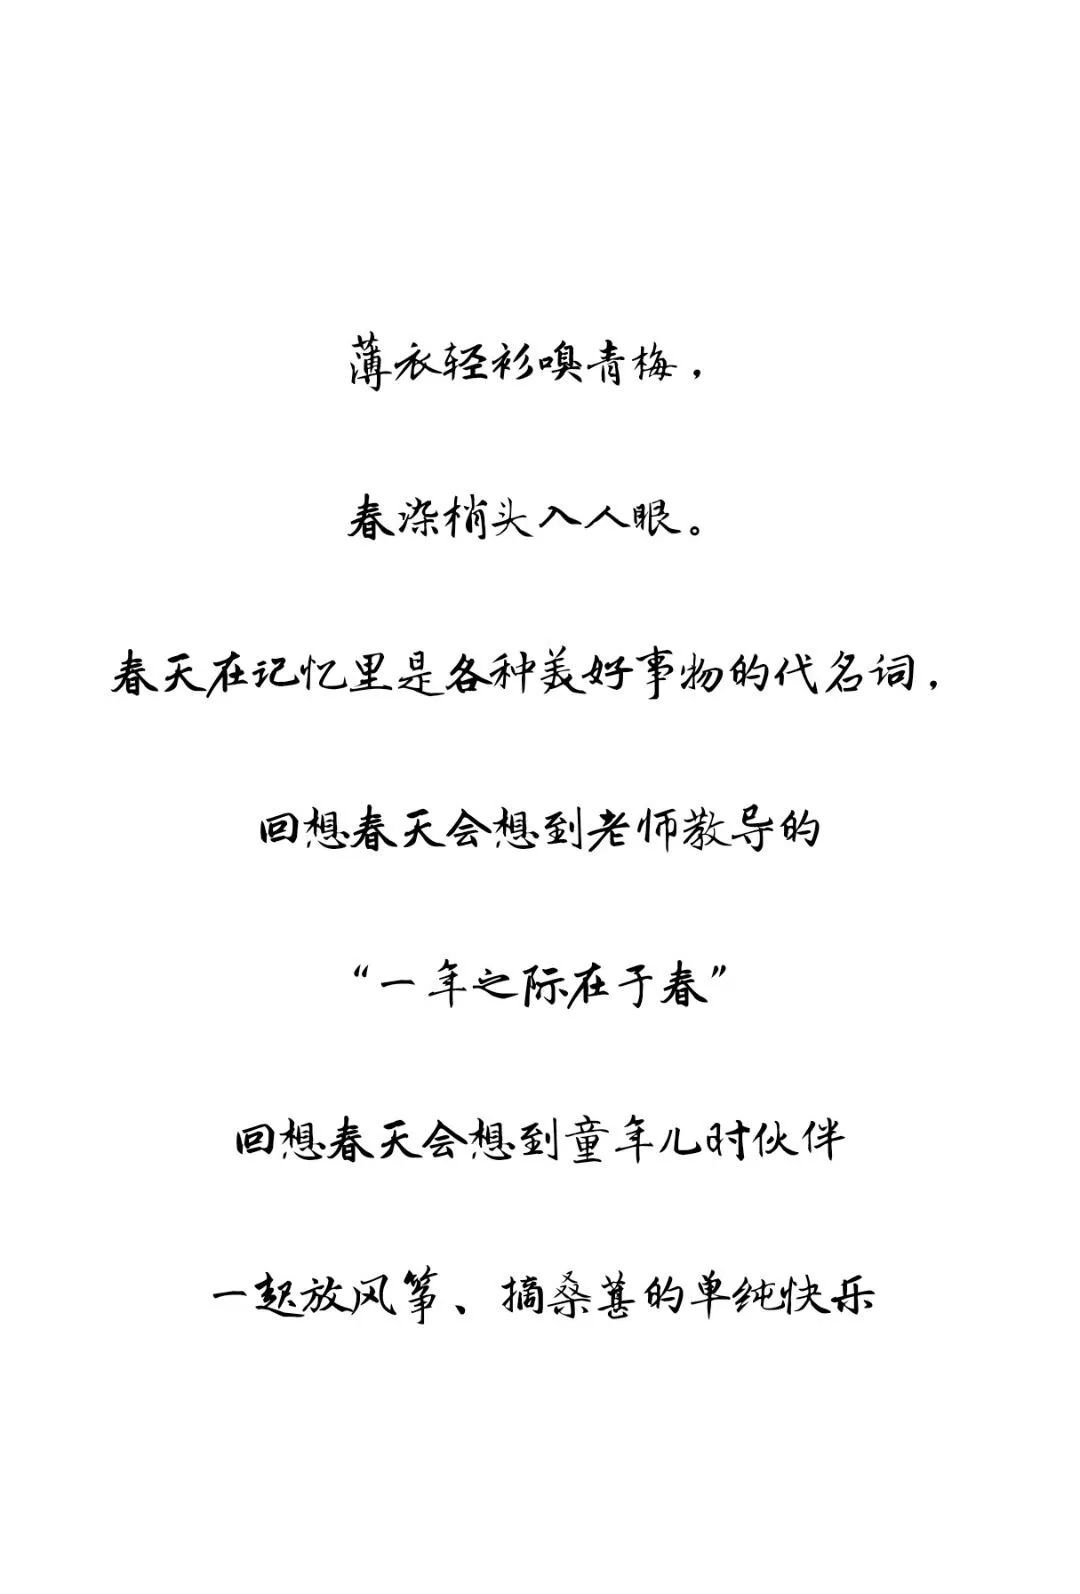 薄衣轻衫嗅青梅，
春染梢头入人眼。
春天在记忆里是各种美好事物的代名词，
回想春天会想到老师教导的
“一年之际在于春”
回想春天会想到童年儿时伙伴
一起放风筝、摘桑葚的单纯快乐